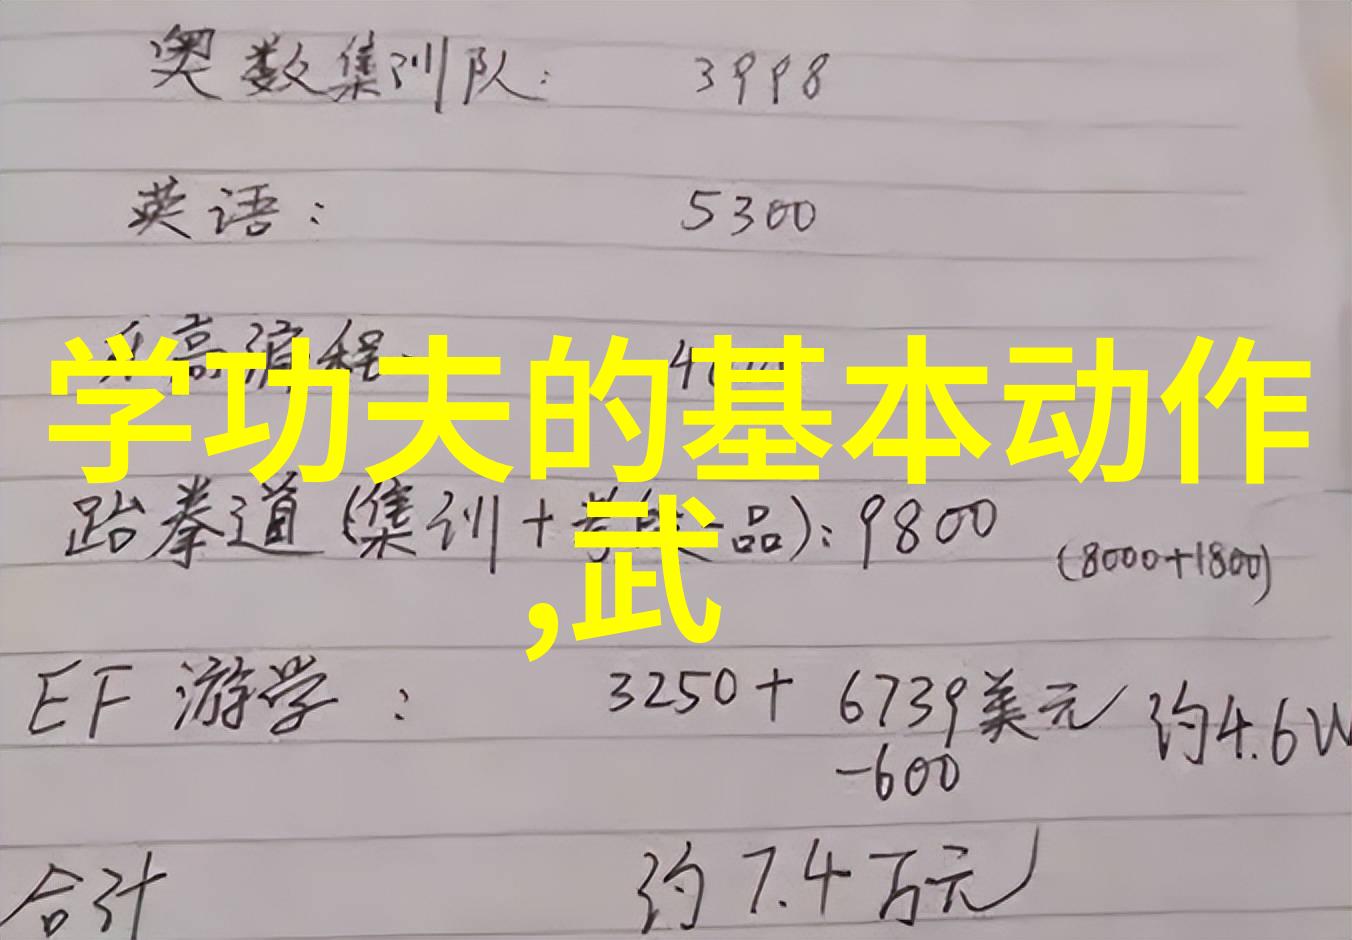 奥数集训队: 3998
英语: 5300
学功夫的基本动作
,武
跆拳道(集训+ 品):9800
(8000+1800)
EF 游学: 3250+ 6739美元 约4.6W
-600
合计 约7.4万元